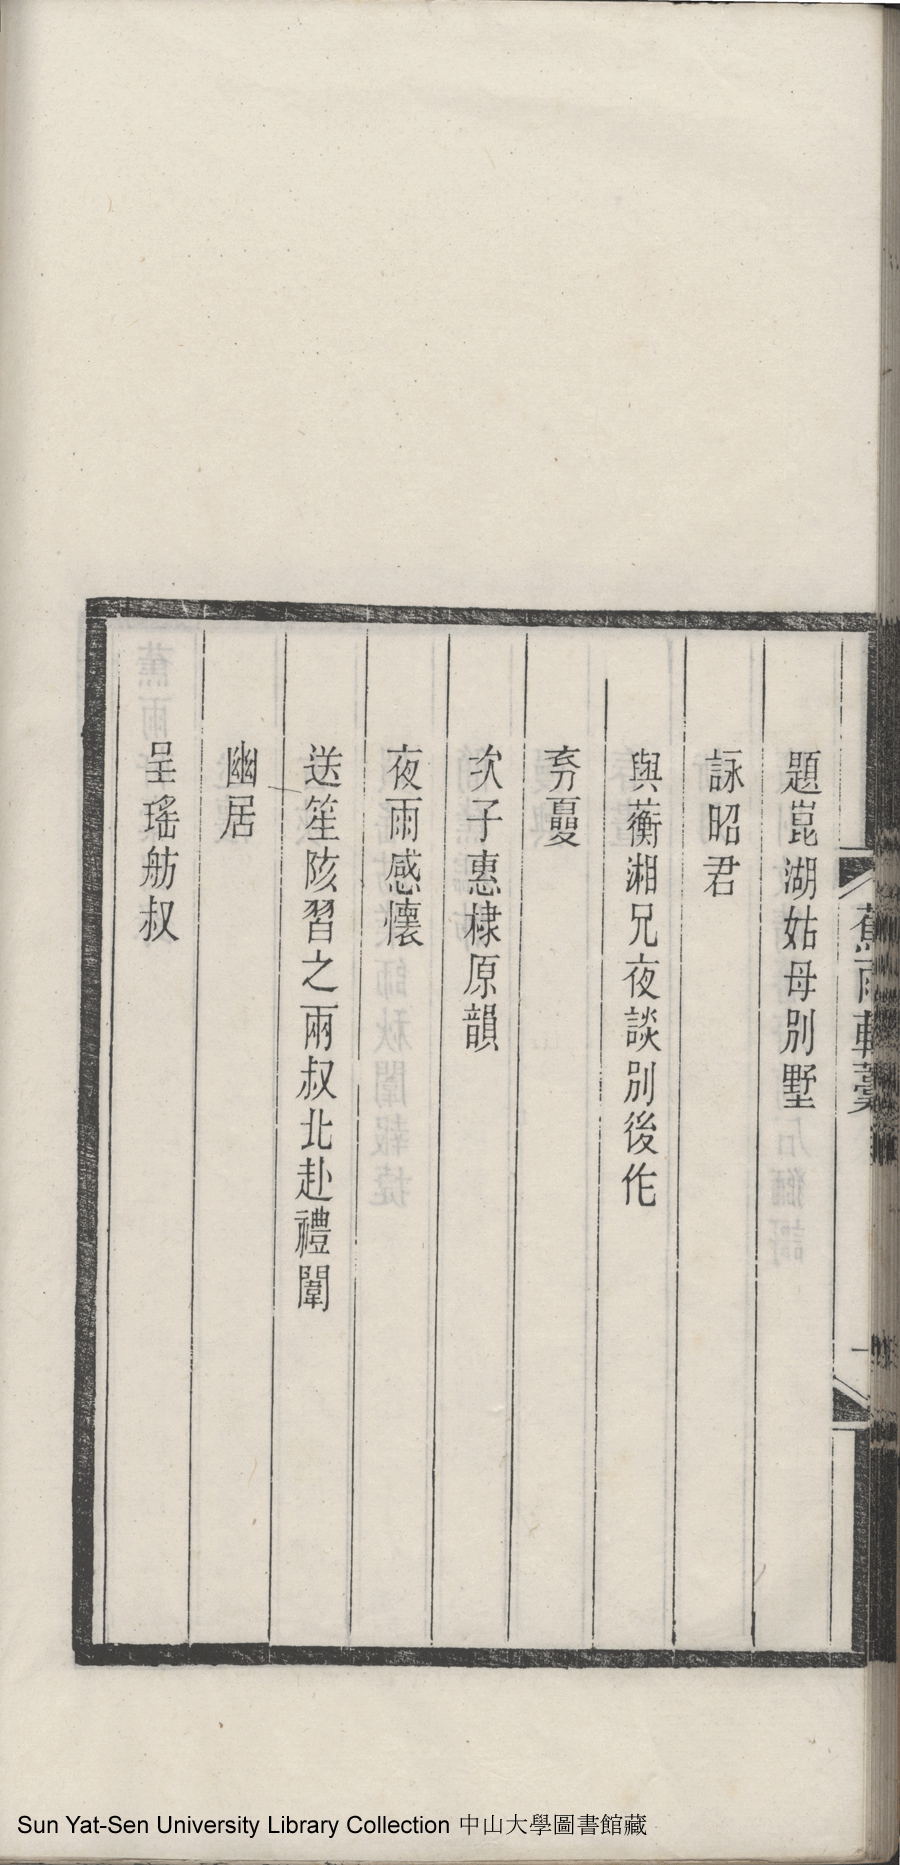 題崑湖姑母別墅
詠昭君
與蘅湘兄夜談別後作
次子惠棣原韻
夜雨感懷
送笙陔習之兩叔北赴禮闈
幽居
呈瑤舫叔
蕉雨軒藁
一
Sun Yat-Sen University Library Collection 中山大學圖書館藏